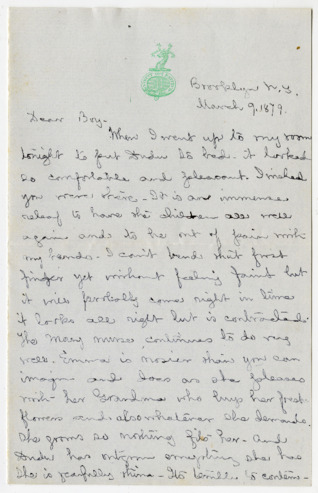 Brooklyn N.Y.
March 9. 1879.
Dear Boy-
When I went up to my room
tonight to put to bed. it looked
so comfortable and pleasant. I wished
you were there - It is an immense
releaf to have the children all well
again and to be out of pain with
my hands. I can't bend that first
finger yet without feeling faint but
it will probably come right in time
it looks all right but is contracted.
The nurse, continues to do very
well. Emma is nosier than you can
imagine and does as she pleases
with her Grandma who buys her fresh
flowers and also whatever she demands.
She grows so nothing fits her. And
has outgrown everything she has
She is fearfully thin -